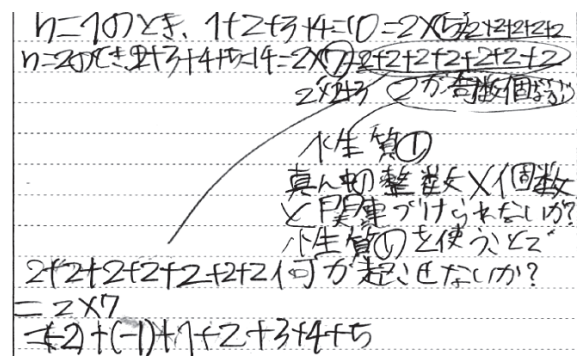 n=1のとき、1+2+3+4=10=2×⑤=2+2+2+2+2
n=2のとき2+3+4+5=14=2×⑦=2+2+2+2+2+2+2
2×2+3 2が奇数個ならぶ
性質①
真ん中の整数×個数
と関連づけられないか?
性質①を使うことで
2+2+2+2+2+2+2 何か起こせないか?
=2×7
=(-2)+(-1)+1+2+3+4+5